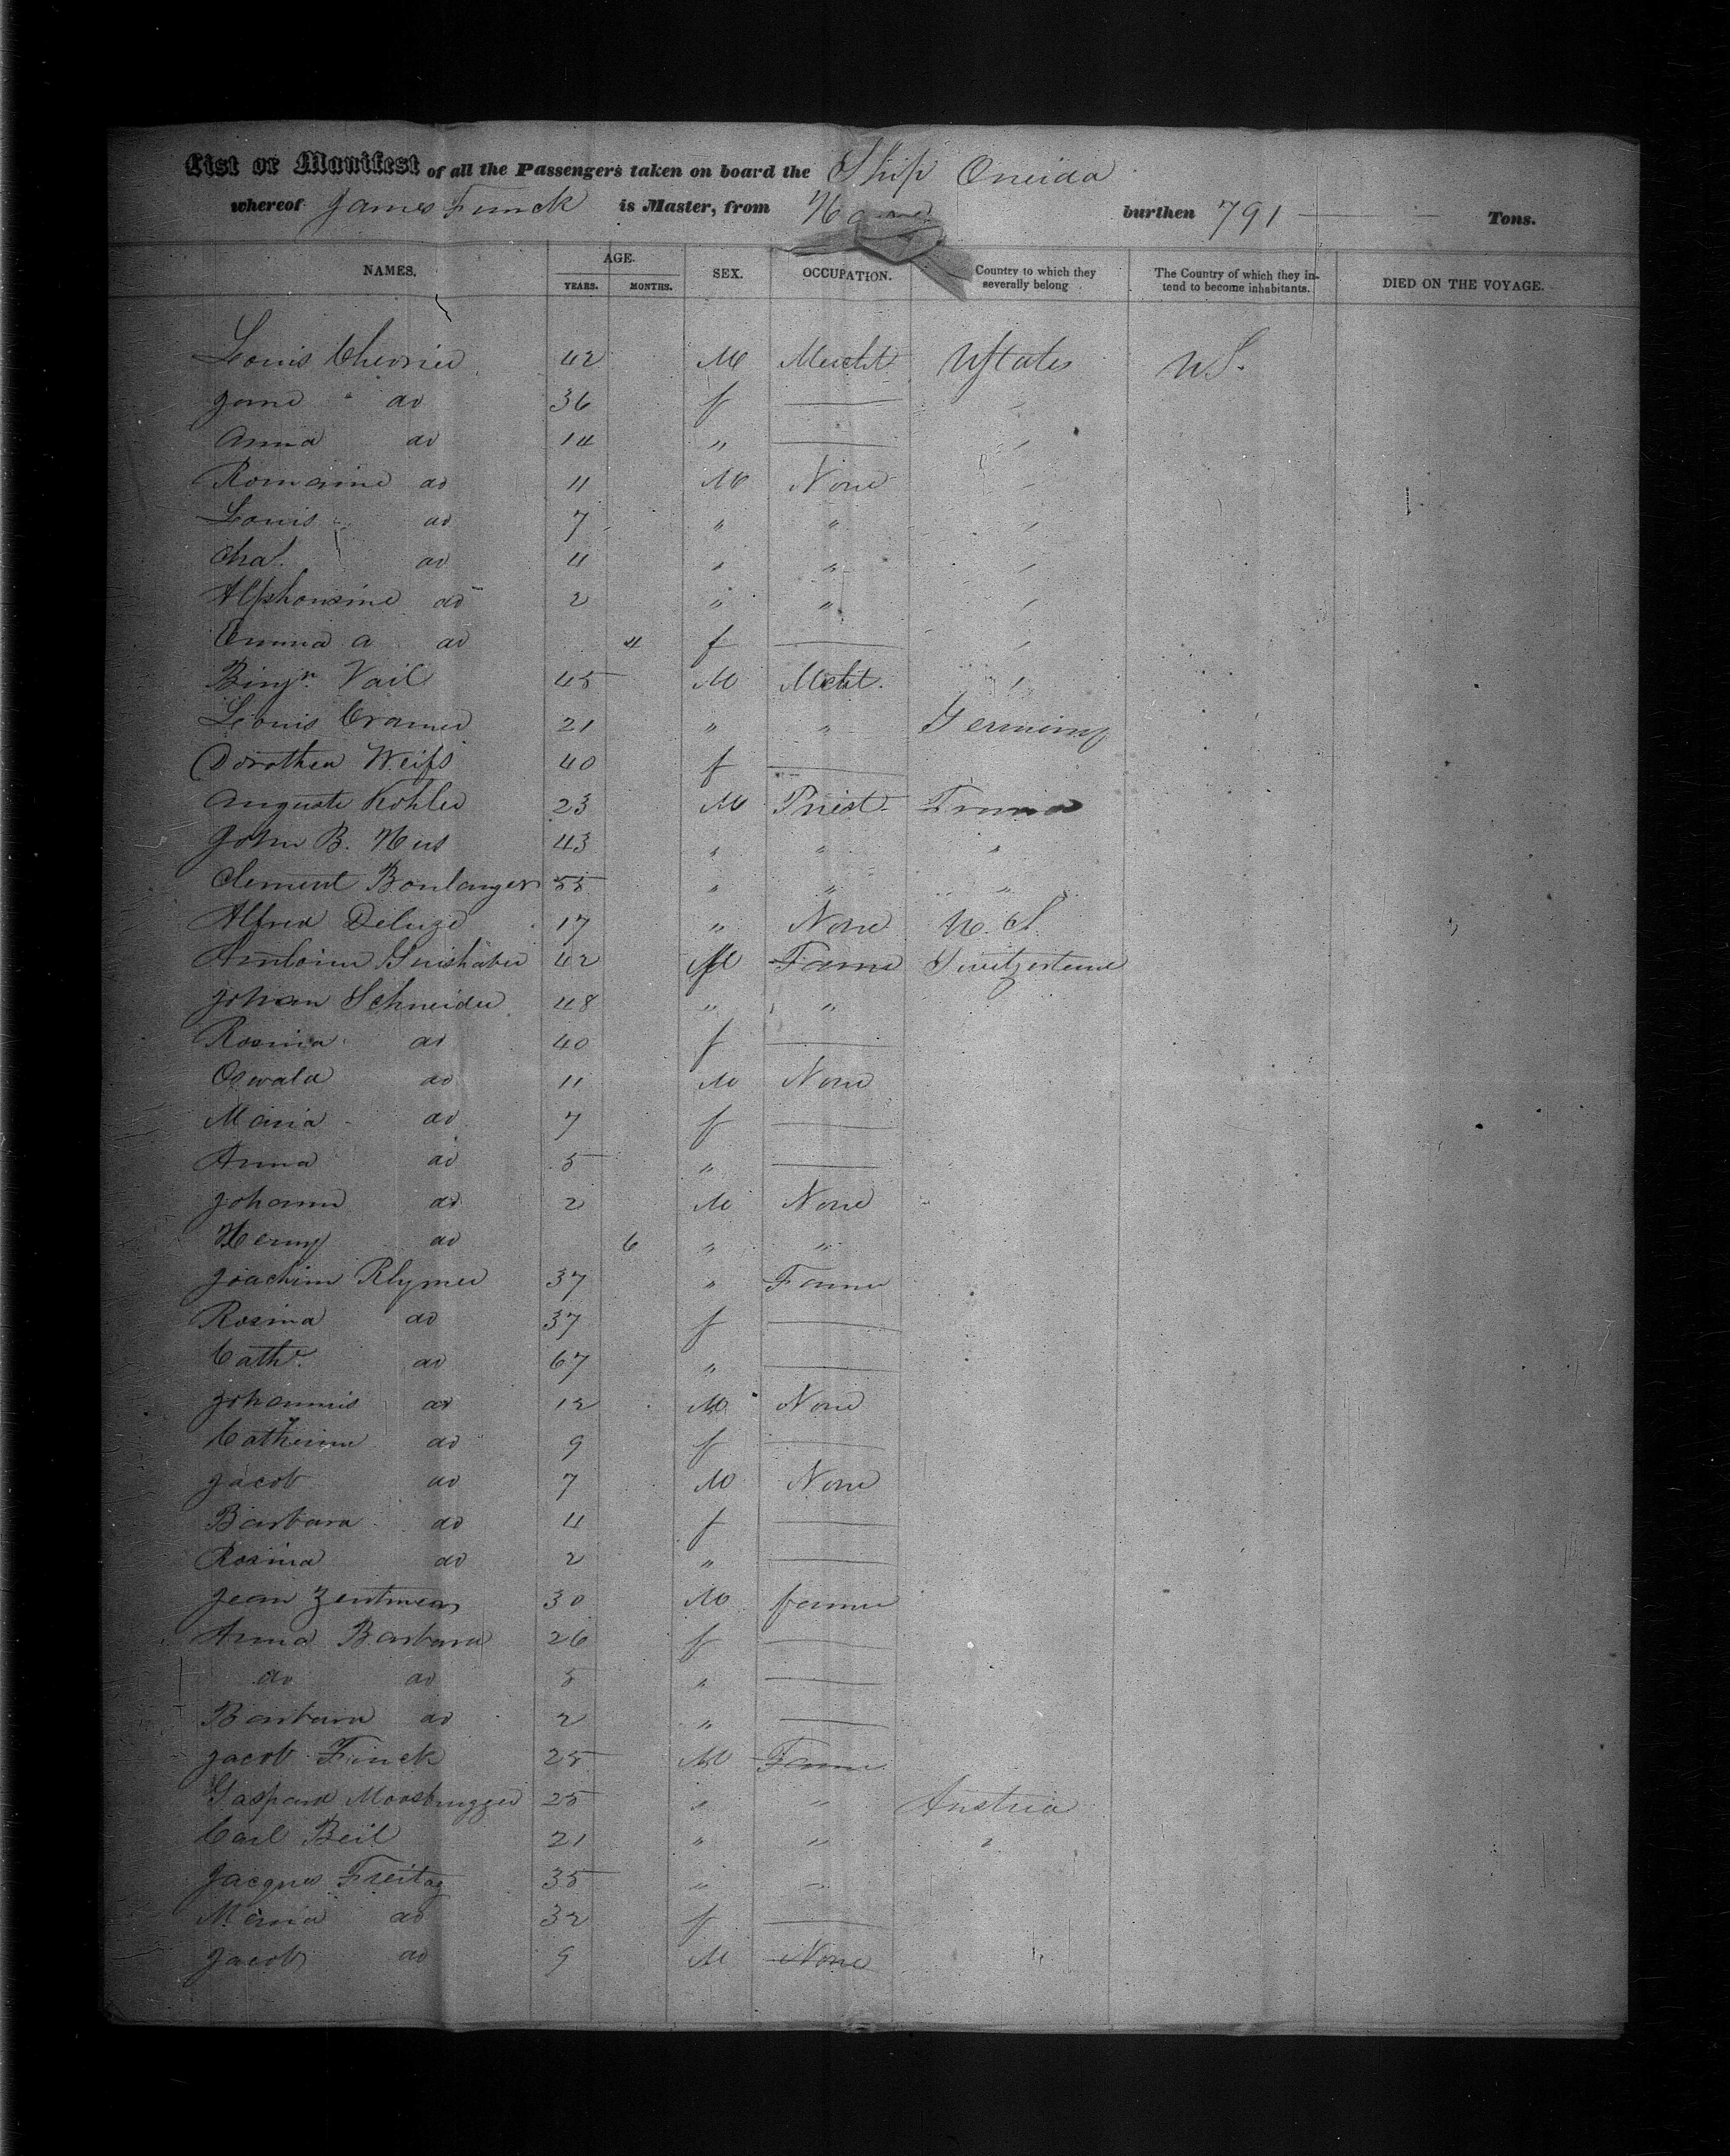 List or Manifest of all the Passengers taken on board the Ship Oneida
whereof James Funck is Master, from Havre burthen 791 — Tons.
NAMES. AGE. YEARS. MONTHS. SEX. OCCUPATION. Country to which they severally belong The Country of which they intend to become inhabitants. DIED ON THE VOYAGE.
Louis Chevrier 42 M Mercht UStates US.
Jane " do 36 f —
Anna do 14 " —
Romaine do 11 M None
Louis " do 7 " "
Chas. do 4 " "
Alphonsine do 2 " "
Emma A do 4 f —
Binjn. Vail 45 M Mcht.
Louis Cramer 21 " " Germany
Dorothea Weifs 40 f —
Auguste Kohler 23 M Priest France
John B. Hus 43 " " "
Clement Boulanger 55 " " "
Alfred Deluze 17 " None U.S.
Antoine 42 M Farmer Switzerland
Johan Schneider 48 " "
Rosina do 40 f —
Oswald do 11 M None
Maria do 7 f —
Anna do 5 " —
Johann do 2 M None
Henry do 6 " "
Joachim Rhymer 37 " Farmer
Rosina do 37 f —
Cathe. do 67 " —
Johannis do 12 M None
Catherine do 9 f —
Jacob do 7 M None
Barbara do 4 f —
Rosina do 2 " —
Jean 30 M farmer
Anna Barbara 26 f —
do do 5 " —
Barbara do 2 " —
Jacob Finck 25 M Farmer
Gaspard Moosbrugger 25 " " Austria
Carl Beil 21 " " "
Jacques Freitag 35 " "
Maria do 32 f —
Jacob do 9 M None